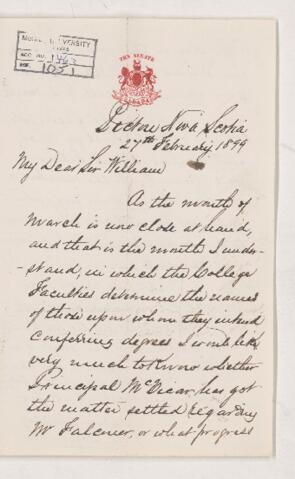 McGILL UNIVERSITY
ACC. NO. 1463
REF. 1051
THE SENATE
CANADA
Pictou Nova Scotia
27th February 1899
My Dear Sir William
As the month of
March is now close at hand,
and that is the month I under-
-stand, in which the College
Faculties determine the names
of those upon whom they intend
conferring degrees I would like
very much to know whether
Principal McVicar, has got
the matter settled regarding
Mr Falconer, or what progress